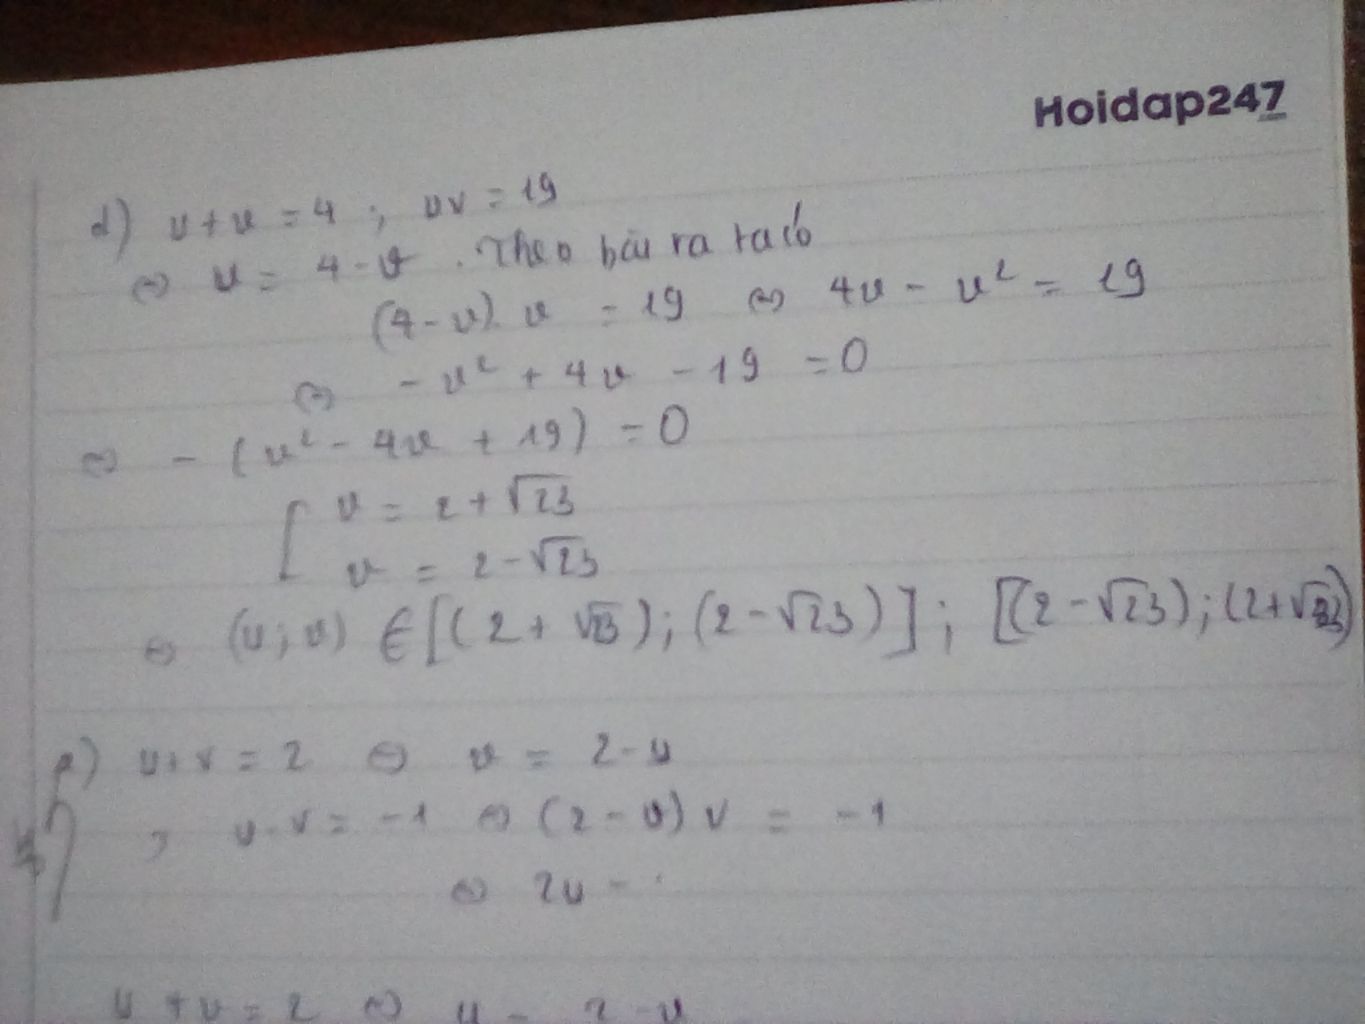 Hoidap247
.com
d) u + v = 4 ; uv = 19
⇔ u = 4 - v . Theo bài ra ta có
(4 - v) . v = 19 ⇔ 4v - v² = 19
⇔ - v² + 4v - 19 = 0
⇔ - (v² - 4v + 19) = 0
[ v = 2 + √23
v = 2 - √23
⇔ (u ; v) ∈ [(2 + √23) ; (2 - √23)] ; [(2 - √23) ; (2 + √23)
e) u + v = 2 ⇔ v = 2 - u
, u . v = -1 ⇔ (2 - v) v = -1
⇔ 2u -
u + v = 2 ⇔ u = 2 - v